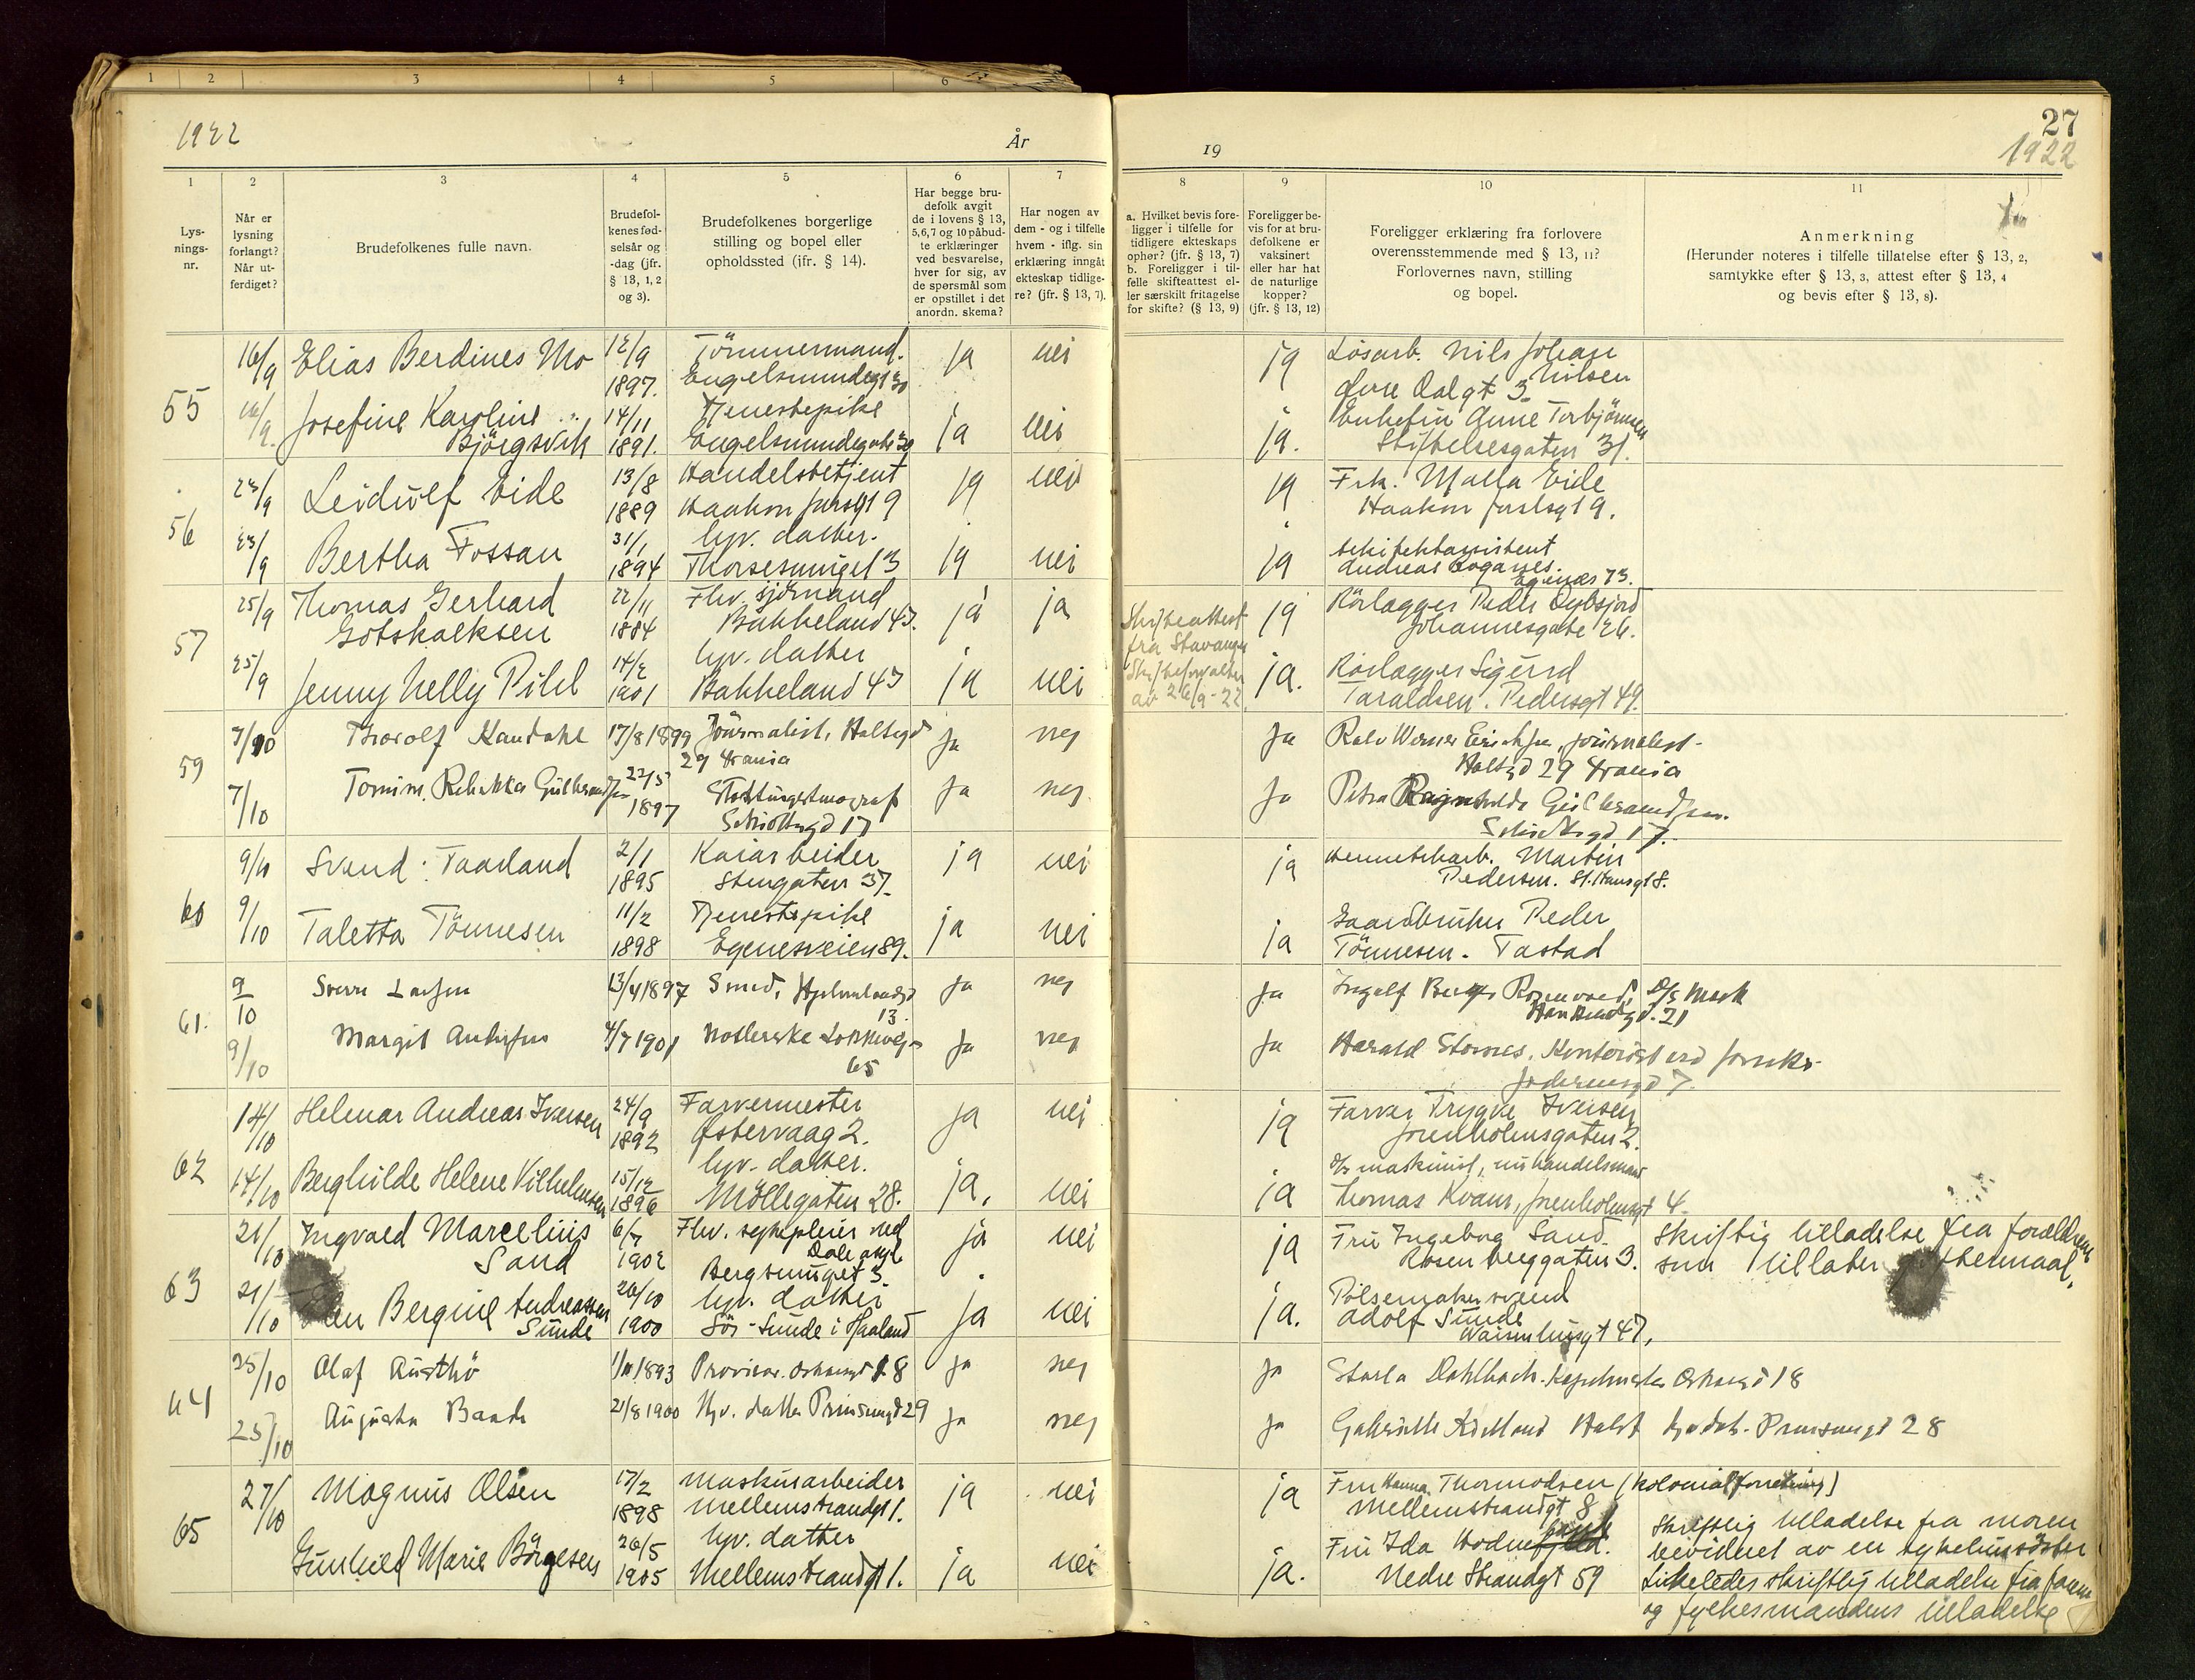 1 2 3 4 5 6
1922 År 19 27
1922
1 2 3 4 5 6 7 8 9 10 11
Lys-
nings-
nr.
Når er
lysning
forlangt?
Når ut-
ferdiget?
Brudefolkenes fulle navn.
Brudefol-
kenes fød-
selsår og
-dag (jfr.
§ 13, 1, 2
og 3).
Brudefolkenes borgerlige
stilling og bopel eller
opholdssted (jfr. § 14).
Har begge bru-
defolk avgit
de i lovens § 13,
5,6,7 og 10 påbud-
te erklæringer
ved besvarelse,
hver for sig, av
de spørsmål som
er opstillet i det
anordn. skema?
Har nogen av
dem - og i tilfelle
hvem - iflg. sin
erklæring inngåt
ekteskap tidlige-
re? (jfr. § 13, 7).
a. Hvilket bevis fore-
ligger i tilfelle for
tidligere ekteskaps
ophør? (jfr. § 13, 7)
b. Foreligger i til-
felle skifteattest el-
ler særskilt fritagelse
for skifte? (§ 13, 9)
Foreligger be-
vis for at bru-
defolkene er
vaksinert
eller har hat
de naturlige
kopper?
(jfr. § 13, 12)
Foreligger erklæring fra forlovere
overensstemmende med § 13, 11?
Forlovernes navn, stilling
og bopel.
Anmerkning
(Herunder noteres i tilfelle tillatelse efter § 13, 2,
samtykke efter § 13, 3, attest efter § 13, 4
og bevis efter § 13, 8).
55
16/9 Elias Berdines Mo 12/9 1897. Tömmermand. Engelsmindegt 30 ja nei ja Lösarb. Nils Johan Nilsen
Dalgt 3.
16/9. Josefine Karoline Bjørgsvik 14/11 1891. Tjenestepike Engelsmindegate 30 ja nei ja. Enkefru Anne Torbjörnsen
Stiftelsesgaten 31.
56
23/9 Leidulf Eide 13/8 1889 Handelsbetjent Haakon Jarlsgt 9 ja nei ja Frk. Malla Eide
Haakon Jarlsgt 9.
23/9 Bertha Fossan 31/1 1894 hjv. datter. Thorsesmuget 3 ja nei ja Arkitektassistent
Andreas
Egenes 73.
57
25/9 Thomas Gerhard Gotskalksen 22/11 1884 Fhv. sjömand Bakkeland 43. ja ja Skifteattest
fra Stavanger
Skifteforvalter
av 26/9-22
ja Rörlægger Peder Dybsjord
Johannesgate 26.
25/9 Jenny Nelly Pihl 14/2 1901 hjv. datter Bakkeland 43 ja nei ja. Rörlægger Sigurd
Taraldsen. Pedersgt 49.
59
7/10 Thorolf Kandahl 17/8 1899 Journalist, Holtegd
29 Krania ja nej ja Rolv Werner Erichsen, journalist
Holtegd 29 Krania
7/10 Tomim. Rebekka Gulbrandsen 22/5 1897 Stortingstenograf
17 ja nej ja Petra Ragnhilda Gulbrandsen.
17.
60
9/10 Svend Taarland 2/1 1895 Kaiarbeider Stengaten 37. ja nei ja Hermetikarb. Martin
Pedersen. St. Hansgt 8.
9/10 Taletta Tönnesen 11/2 1898 Tjenestepike Egenesveien 89. ja nei ja Gaardbruker Peder
Tönnesen. Tastad
61.
9/10 Sverre Larsen 13/4 1897 Smed, Hjelmelandsgd
13. ja nej ja Ingolf Rosenvold,
21
9/10 Margit Andersen 4/7 1901 65 ja nej ja Harald Kontorist
7
62
14/10 Helmar Andreas Iversen 24/9 1892 Farvermester Østervaag 2. ja nei ja Farver Trygve Iversen
Jorenholmsgaten 2.
14/10 Berghilde Helene Vilhelmsen 15/12 1896 hjv. datter. Möllegaten 28. ja. nei ja maskinist, nu handelsmand
Thomas Kvam, Jorenholmsgt 4.
63
21/10 Ingvald Marcelius Sand 6/7 1902 Fhv. sykepleier ved
Dale asyl
Bergsmuget 3. ja nei ja Fru Ingeborg Sand.
Rosenberggaten 3.
Skriftlig tilladelse fra forældrene
som tillater
21/10 Bergine Andreassen Sunde 26/10 1900 hjv. datter Sör-Sunde i Haaland ja nei ja. Pölsemakersvend
Adolf Sunde
Waisenhusgt 47.
64
25/10 Olaf Austbö 1893 Provisor. 18 ja nej ja Sturla Dahlbach. 18
25/10 Augusta Baade 21/8 1900 Hjv. datter Prinsensgd 29 ja nej ja Gabrielle Kielland Holst Prinsensgd 28
65
27/10 Magnus Olsen 17/2 1898 Maskinarbeider Mellemstrandgt 1. ja nei ja Fru Hanna Thormodsen (kolonialforretning)
Mellemstrandgt 8
Gunhild Marie Börgesen 26/5 1905 hjv. datter Mellemstrandgt 1. ja nei ja. Fru Ida
Nedre Strandgt 59
Skriftlig tilladelse fra moren
bevidnet av en sykehussöster
Likeledes skriftlig tilladelse fra faren
og fylkesmandens tilladelse